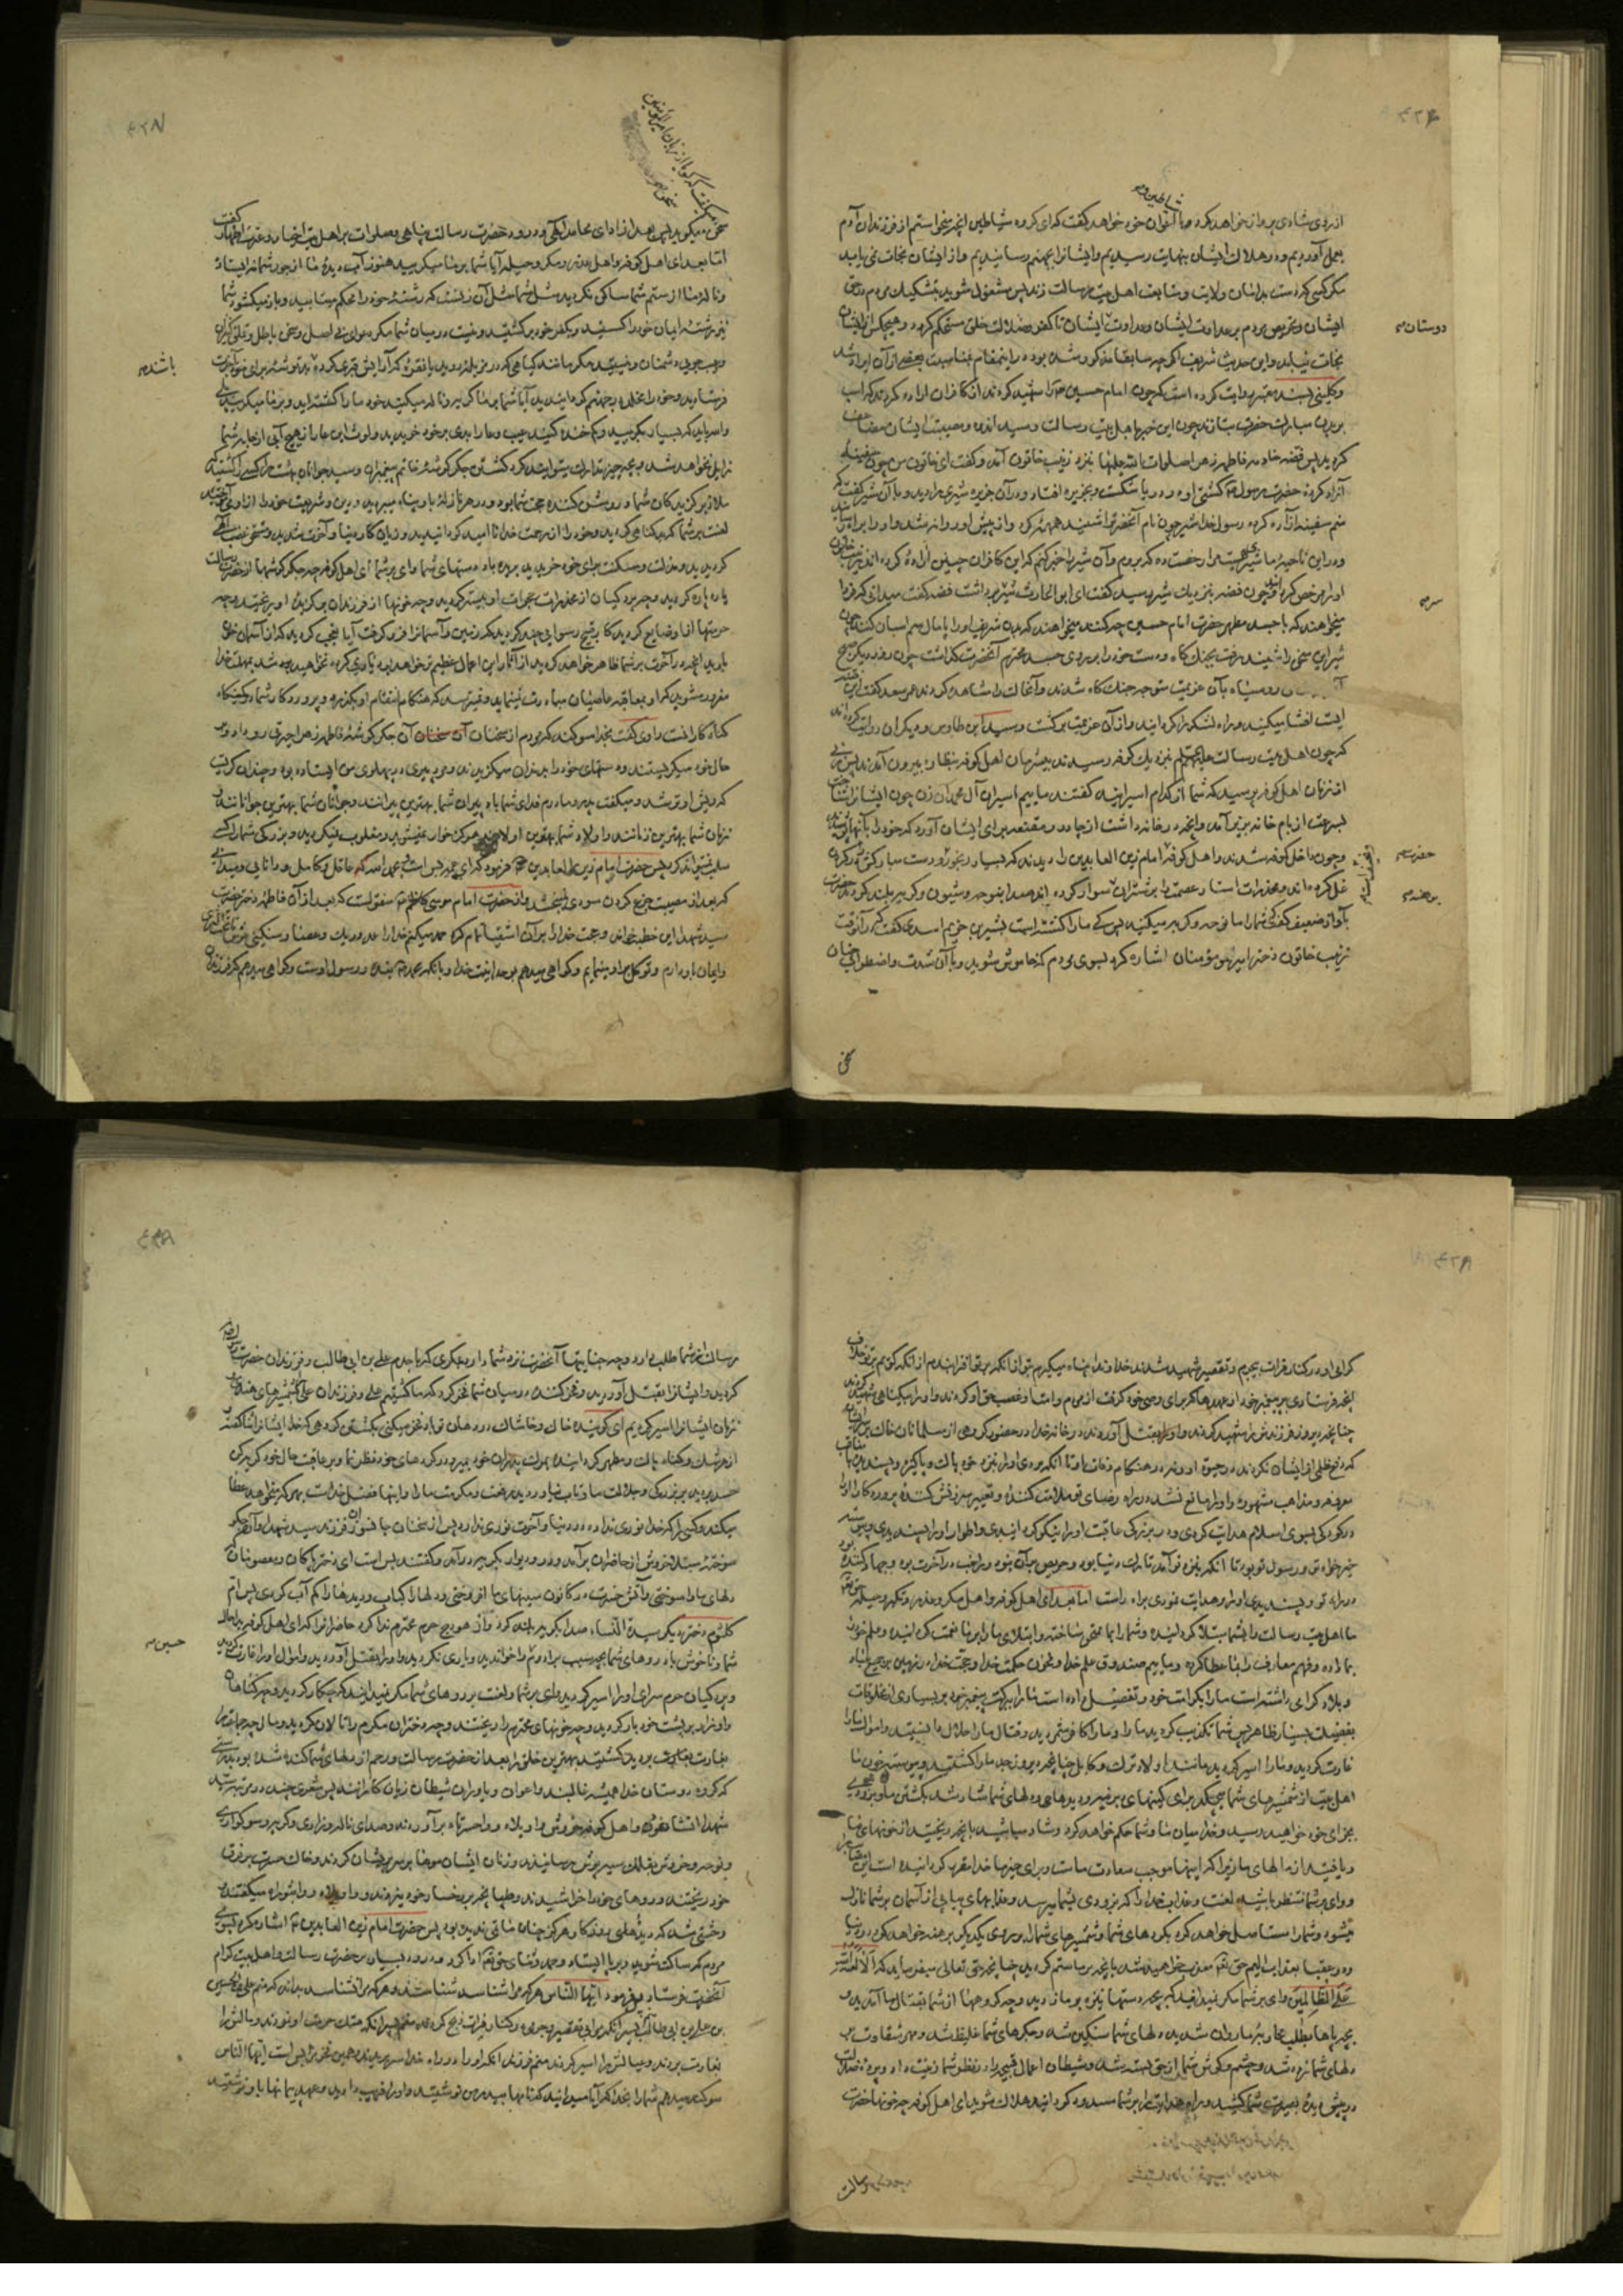 از روی شادی پرواز خواهد کرد و با اعوان خود خواهد گفت که ای گروه شیاطین آنچه میخواستیم از فرزندان آدم
بعمل آوردیم و در هلاک ایشان بنهایت رسیدیم و ایشانرا بجهنم رسانیدیم و از ایشان نجات نمی یابد
مگر کسی که دست بدامان ولایت و متابعت اهل بیت رسالت زند پس مشغول شوید بتشکیک مردم در حق
ایشان و تحریص مردم بر عداوت ایشان و عداوت ایشان تا کفر و ضلالت خلق مستحکم گردد و هیچکس از ایشان
دوستان
نجات نیابد و این حدیث شریف اگرچه سابقا مذکور شده بود در اینمقام بمناسبت بعضی از آن ایراد شد
و کلینی بسند معتبر روایت کرده است که چون امام حسین را شهید کردند آن کافران اراده کردند که اسب
بر بدن مبارک حضرت بتازند چون این خبر باهل بیت رسالت رسید اندوه و مصیبت ایشان مضاعف
گردید پس فضه خادمه فاطمه زهرا صلوات الله علیها بنزد زینب خاتون آمد و گفت ای خاتون من چون سفینه
آزاد کرده حضرت رسول کشتی او در دریا شکست و بجزیره افتاد و در آن جزیره شیری را دید و با آن شیر گفت که
منم سفینه آزاد کرده رسول خدا شیر چون نام آنحضرت را شنید همهمه کرد و از پیش او روانه شد و او را براه
و در این ناحیه ما شیری هست مرا رخصت ده که بروم و آن شیر را خبر کنم که این کافران چنین اراده کرده اند زینب خاتون
او را مرخص کرد و چون فضه بنزدیک شیر رسید گفت ای ابو الحارث شیر سر برداشت فضه گفت میدانی که فردا
سر
میخواهند که با جسد مطهر حضرت امام حسین چه کنند میخواهند که بدن شریف او را پامال سم اسبان کنند چون
شیر این سخن را شنید رفت بجنگ گاه و دست خود را بر روی جسد محترم آنحضرت گذاشت چون روز دیگر صبح
رو سیاه بآن عزیمت متوجه جنگ گاه شدند و آنحالت را مشاهده کردند عمر سعد گفت این فتنه
ایست افشا میکنید و راه لشکر را گردانید و از آن عزیمت برگشت و سید ابن طاوس و دیگران روایت کرده اند
که چون اهل بیت رسالت علیهم السلام نزدیک کوفه رسیدند بیشرمان اهل کوفه بنظاره بیرون آمدند پس زنی
از زنان اهل کوفه پرسید که شما از کدام اسیرانید گفتند ماییم اسیران آل محمد آن زن چون ایشانرا شناخت
بسرعت از بام خانه بزیر آمد و آنچه در خانه داشت از چادر و مقنعه برای ایشان آورد که خود را بآنها پوشند
و چون داخل کوفه شدند اهل کوفه امام زین العابدین را دیدند که بسیار رنجور و دست مبارکش در گردن
حضرت
غل کرده اند و مخدرات استار عصمت را بر شتران سوار کرده اند صدا بنوحه و شیون و گریه بلند کردند حضرت
برهنه
بآواز ضعیف گفت که شما بر ما نوحه و گریه میکنید پس که ما را کشته است بشیر بن خزیم اسدی گفت که در آنوقت
زینب خاتون دختر امیر المؤمنان اشاره کرد بسوی مردم که خاموش شوید و با آن شدت و اضطراب چنان
سخن
سخن میگفت که گویا از زبان امیر المؤمنین
سخن میگوید پس بعد از ادای محامد الهی و درود حضرت رسالت پناهی و صلوات بر اهل بیت اخیار و عترت اطهار گفت
اما بعد ای اهل کوفه و اهل غدر و مکر و حیله آیا شما بر ما میگریید هنوز آب دیدهٔ ما از جور شما نه ایستاده
و ناله ما از ستم شما ساکن نگردیده مثل شما مثل آن زنست که رشتهٔ خود را محکم میتابید و باز میگشود و شما
نیز رشته ایمان خود را گسستید و بکفر خود برگشتید و نیست در میان شما مگر دعوای بی اصل و سخن باطل و تملق کنیزان
و عیب جویی دشمنان و نیستید مگر مانند گیاهی که در مزبله روید یا نقره که آرایش قبری کرده بد توشه برای خود بآخرت
باشند
فرستادید و خود را مخلد در جهنم گردانیدید آیا شما بر ما گریه و ناله میکنید خود ما را کشته اید و بر ما میگریید بلی
والله باید که بسیار بگریید و کم خنده کنید عیب و عار ابدی بر خود خریدید و لوث این عار از هیچ آبی از جامه شما
زایل نخواهد شد بچه چیز تدارک میتوانید کرد کشتن جگر گوشهٔ خاتم پیغمبران و سید جوانان بهشت را کسی را کشتید که
ملاذ برگزیدگان شما و روشن کننده حجت شما بود و در هر نازله باو پناه میبردید و دین و شریعت خود را از او می آموختید
لعنت بر شما که بد گناهی کردید و خود را از رحمت خدا نا امید گردانیدید و زیان کار دنیا و آخرت شدید و مستحق غضب الهی
گردیدید و مذلت و مسکنت برای خود خریدید بریده باد دستهای شما وای بر شما ای اهل کوفه چه جگر گوشها از حضرت رسالت
پاره پاره کردید و چه پردگیان از مخدرات حجرات او بی ستر کردید و چه خونها از فرزندان برگزیدهٔ او ریختید و چه
حرمتها از او ضایع کردید کار قبیح رسوایی چند کردید که زمین و آسمانرا فرو گرفت آیا تعجب کردید که از آسمان خون
بارید آنچه در آخرت بر شما ظاهر خواهد گردید از آثار این اعمال عظیم تر خواهد بود و یاری کرده نخواهید شد بمهلت خدا
مغرور مشوید که او بمعاقبه عاصیان مبادرت نمینماید و نمیترسد که هنگام انتقام او بگذرد و پروردگار شما در کمینگاه
گناه کارانست راوی گفت بخدا سوگند که مردم از سخنان آن جگر گوشهٔ فاطمه زهرا حیرتی رو داد و بر
حال خود میگریستند و دستهای خود را بدندان میگزیدند و مرد پیری در پهلوی من ایستاده بود و چندان گریست
که ریش او تر شد و میگفت پدر و مادرم فدای شما باد پیران شما بهترین پیرانند و جوانان شما بهترین جوانانند و
زنان شما بهترین زنانند و اولاد شما بهترین اولادند هرگز خوار نمیشوید و مغلوب نمیگردید و بزرگی شما را کسی
سلب نمیتواند کرد پس حضرت امام زین العابدین فرمود که ای عمه بس است بحمد الله که عاقل و کامل و دانایی و میدانی
که بعد از مصیبت جزع کردن سودی نمی بخشد و از حضرت امام موسی کاظم منقولست که بعد از آن فاطمه دختر حضرت
سید شهدا این خطبه خواند و حجت خدا را بر آن اشقیا تمام کرد حمد میکنم خدا را بعدد ریگ و حصا و سنگینی عرش تا
و ایمان باو دارم و توکل بر او مینمایم و گواهی میدهم بوحدانیت خدا و بآنکه محمد بنده و رسول اوست و گواهی میدهم که فرزندان
گرامی او در کنار فرات بی جرم و تقصیر شهید شدند خداوندا پناه میگیرم بتو از آنکه بر تو افترا بندم از آنکه گویم بر تو خلاف
آنچه فرستادی بر پیغمبر خود از عهدها که برای وصی خود گرفت از مردم و امت او غصب حق او کردند و او را بیگناهی شهید کردند
چنانچه دیروز فرزندش را شهید کردند و او را بقتل آوردند در خانه خدا در حضور گروهی از مسلمانان خاک بر سر ایشان
که دفع ظلمی از ایشان نکردند در حیوة او و نه در هنگام وفات او تا آنکه بردی او را بنزد خود پاک و پاکیزه و پسندیده با مناقب
معروفه و مذاهب مشهوره و او را مانع نشد در راه رضای تو ملامت کننده و تعییر سرزنش کننده پروردگارا او را
در کودکی بسوی اسلام هدایت کردی و در بزرگی عاقبت او را نیکو گردانیدی و اطوار او را پسندیدی و پیوسته
خیر خواه تو و رسول تو بود تا آنکه بنزد تو آمد تارک دنیا بود و حریص بر آن نبود و راغب در آخرت بود و جهاد کننده بود
در راه تو و پسندیدی او را و هدایت نمودی براه راست اما بعد ای اهل کوفه و اهل مکر و غدر و تکبر و حیله حق تعالی
ما اهل بیت رسالت را بشما مبتلا گردانیده و شما را بما ممتحن ساخته و ابتلای ما را بر ما نعمت گردانیده و علم خود را
بما داده و فهم معارف را بما عطا کرده و ماییم صندوق علم خدا و مخزن حکمت خدا و حجت خدا در زمین بر جمیع عباد
و بلاد گرامی داشته است ما را بکرامت خود و تفضیل داده است ما را ببرکت پیغمبر خود بر بسیاری از مخلوقات
بفضیلت بسیار ظاهر پس شما تکذیب کردید ما را و ما را کافر شمردید و قتال ما را حلال دانستید و اموال ما را
غارت کردید و ما را اسیر کردید مانند اولاد ترک و کابل چنانچه دیروز جد ما را کشتید و پیوسته خون ما
اهل بیت از شمشیرهای شما میچکد برای کینهای دیرینه و دیدهای و دلهای شما شاد شد بکشتن ما و بزودی
بجزای خود خواهید رسید و خدا میان ما و شما حکم خواهد کرد و شاد مباشید بآنچه ریختید از خونهای ما
و یافتید از مالهای ما زیرا که اینها موجب سعادت ماست و برای جزیها خدا مقرر گردانیده است
و وای بر شما منتظر باشید لعنت و عذاب خدا را که بزودی بشما میرسد و عذابهای پیاپی از آسمان بر شما نازل
میشود و شما را مستاصل خواهد کرد بکرده های شما و شمشیرهای شما را بر روی یکدیگر برهنه خواهد کرد در دنیا
و در عقبی بعذاب الیم حق معذب خواهید شد بآنچه بر ما ستم کردید چنانچه حق تعالی میفرماید که الا لعنة الله
علی الظالمین وای بر شما مگر نمیدانید که بچه دستها نیزه بر ما زدید و چه گروهها از شما بقتال ما آمدید و
بچه پاها بطلب محاربه ما روان شدید دلهای شما سنگین شد و جگرهای شما غلیظ شد و مهر شقاوت بر
دلهای شما زده شد و چشم و گوش شما از حق بسته شد و شیطان اعمال قبیح را در نظر شما زینت داد و پردهٔ ضلالت
در پیش دیدهٔ بصیرت شما کشید و راه هدایت را بر شما مسدود گردانید هلاک شوید ای اهل کوفه چه خونها حضرت
رسالت
رسالت از شما طلب دارد و چه جنایتها آنحضرت نزد شما دارد بمکری که با جدم علی بن ابی طالب و فرزندان حضرت رسول خدا
کردید و ایشانرا بقتل آوردید و فخر کننده در میان شما فخر کرد که ما کشتیم علی و فرزندان علی را بشمشیرهای هندی
زنان ایشانرا اسیر کردیم ای گوینده خاک و خاشاک در دهان تو باد فخر میکنی بکشتن گروهی که خدا ایشانرا ثنا گفته و
از هر شک و گناه پاک و مطهر گردانیده بمرک پدران خود بمیر و در کرده های خود نظر نما و بر عاقبت حال خود گریه کن
حسد بردید بر بزرگی و جلالت ما و تاب نیاوردید رفعت و مکرمت ما را و اینها فضل خداست بهر که میخواهد عطا
میکند و کسی را که خدا نوری نداده در دنیا و آخرت نوری ندارد پس از سخنان جانسوز آن فرزند سید شهدا و آن جگر
سوخته مبتلا خروش از حاضران برآمد و در و دیوار بگریه درآمد و گفتند بس است ای دختر پاکان و معصومان
دلهای ما را سوختی و آتش حسرت در کانون سینهای ما افروختی و دلها را کباب و دیدها را کم آب کردی پس ام
کلثوم دختر دیگر سیدة النساء صدا بگریه بلند کرد و از هودج حرم محترم ندا کرد حاضرانرا که ای اهل کوفه بدا حال
شما و ناخوش باد روهای شما بچه سبب برادرم را خواندید و یاری نکردید و او را بقتل آوردید و اموال او را غارت کردید
حسین
و پردگیان حرم سرای او را اسیر کردید وای بر شما و لعنت بر روهای شما مگر نمیدانید که چکار کردید و چه گناهان
و اوزار بر پشت خود بار کردید و چه خونهای محترم را ریختید و چه دختران مکرم را نالان کردید و مال چه جماعت را
بغارت بردید کشتید بهترین خلق را بعد از حضرت رسالت و رحم از دلهای شما کنده شده بود بدرستی
که گروه دوستان خدا همیشه غالبند و اعوان و یاوران شیطان زیان کارانند پس شعری چند در مرثیه سید
شهدا انشا فرمود و اهل کوفه خروش وا ویلاه و وا حسرتاه برآوردند و صدای ناله و زاری و گریه و سوگواری
و نوحه و خروش بفلک سبز پوش رسانیدند و زنان ایشان موها بر سر پریشان کردند و خاک حسرت بر فرق
خود ریختند و روهای خود را خراشیدند و طپانچه بر رخسار خود میزدند و وا ویلاه و وا ثبوراه میگفتند و
وحشتی شد که دیدهای روزگار هرگز چنان ماتمی ندیده بود پس حضرت امام زین العابدین اشاره کرد بسوی
مردم که ساکت شوید و برپا ایستاد و حمد و ثنای حق ادا کرد و درود بسیار بر حضرت رسالت و اهل بیت کرام
آنحضرت فرستاد و فرمود ایها الناس هر که مرا شناسد شناسد و هر که مرا نشناسد بداند که منم علی بن حسین
بن علی بن ابی طالب منم پسر آنکه او را بی تقصیر و جرم در کنار فرات ذبح کردند منم پسر آنکه هتک حرمت او نمودند و مالش را
بغارت بردند و عیالش را اسیر کردند منم فرزند آنکه او را در راه خدا سر بریدند و همین فخر مرا بس است ایها الناس
سوگند میدهم شما را بخدا که آیا میدانید که نامها بپدر من نوشتید و او را فریب دادید و عهد و پیمانها باو نوشتید